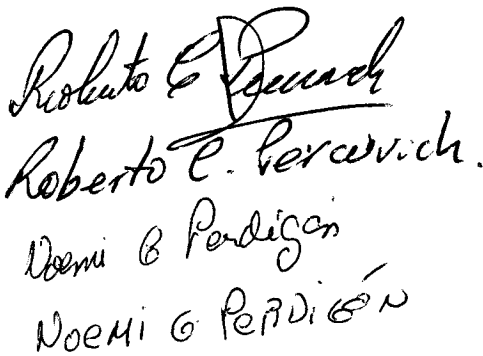 Roberto C Percovich
Roberto C. Percovich.
Noemi G Perdigón
NOEMI G PERDIGÓN